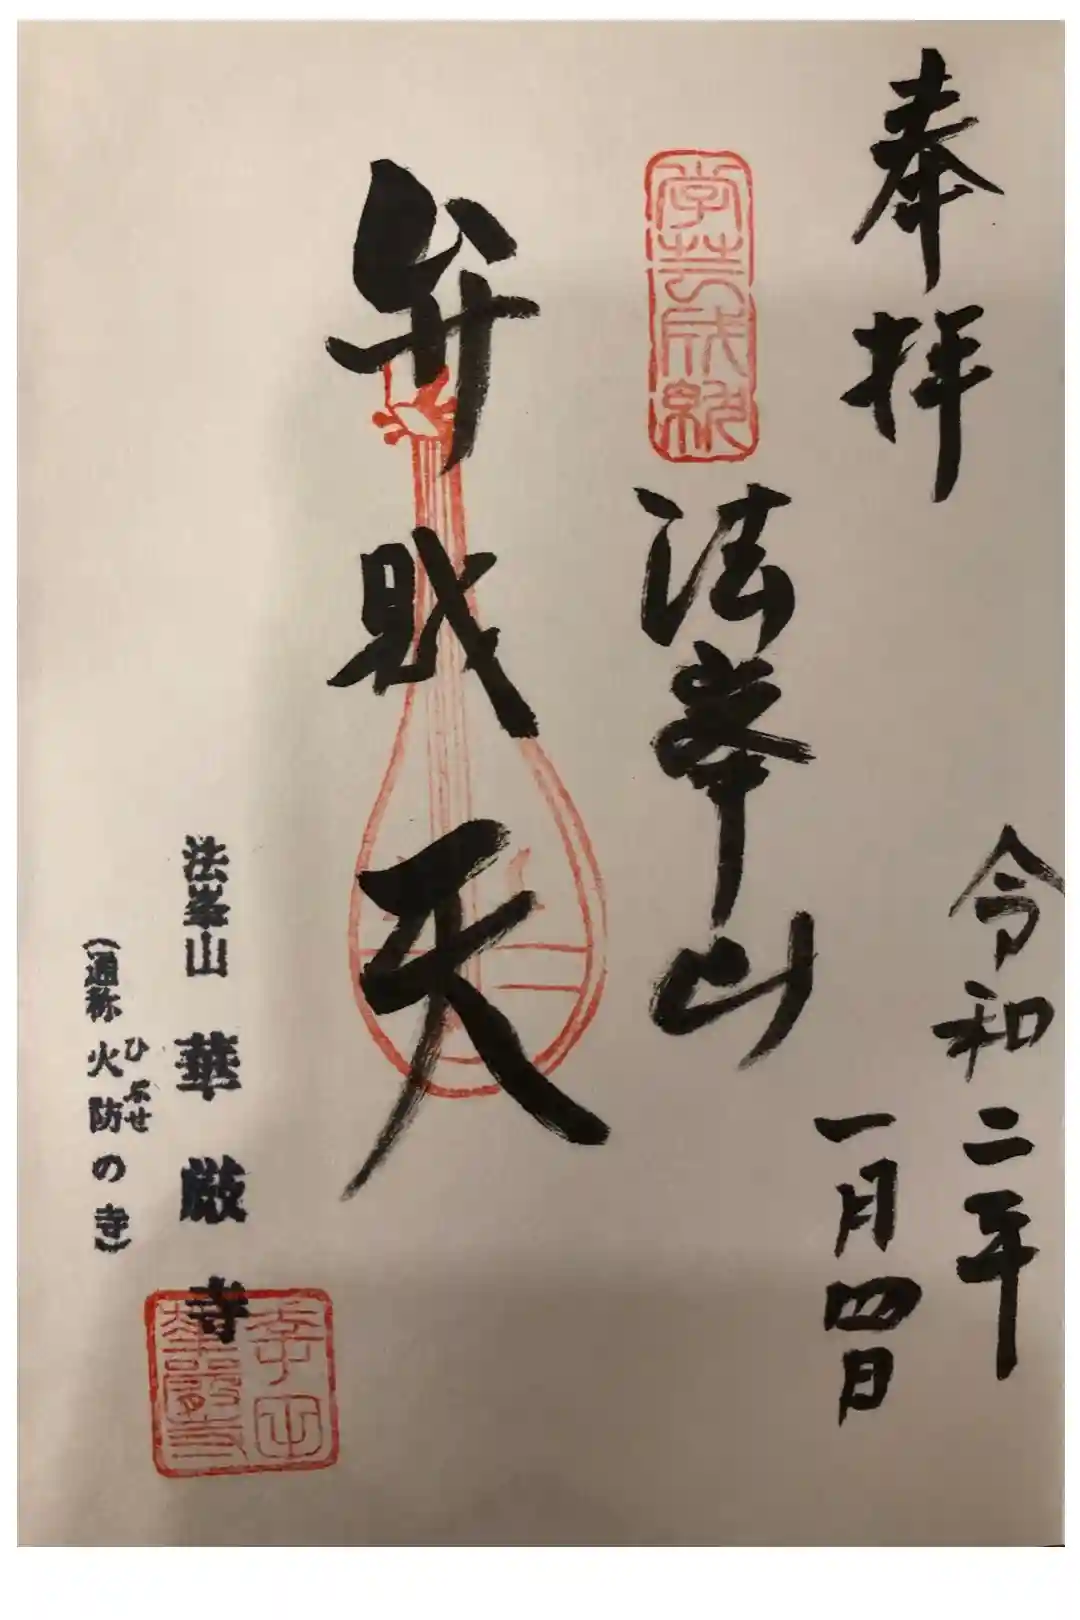 奉拝
令和二年
一月四日
学芸成就
法峯山
弁財天
法峯山 華厳寺
ひぶせ
(通称 火防の寺)